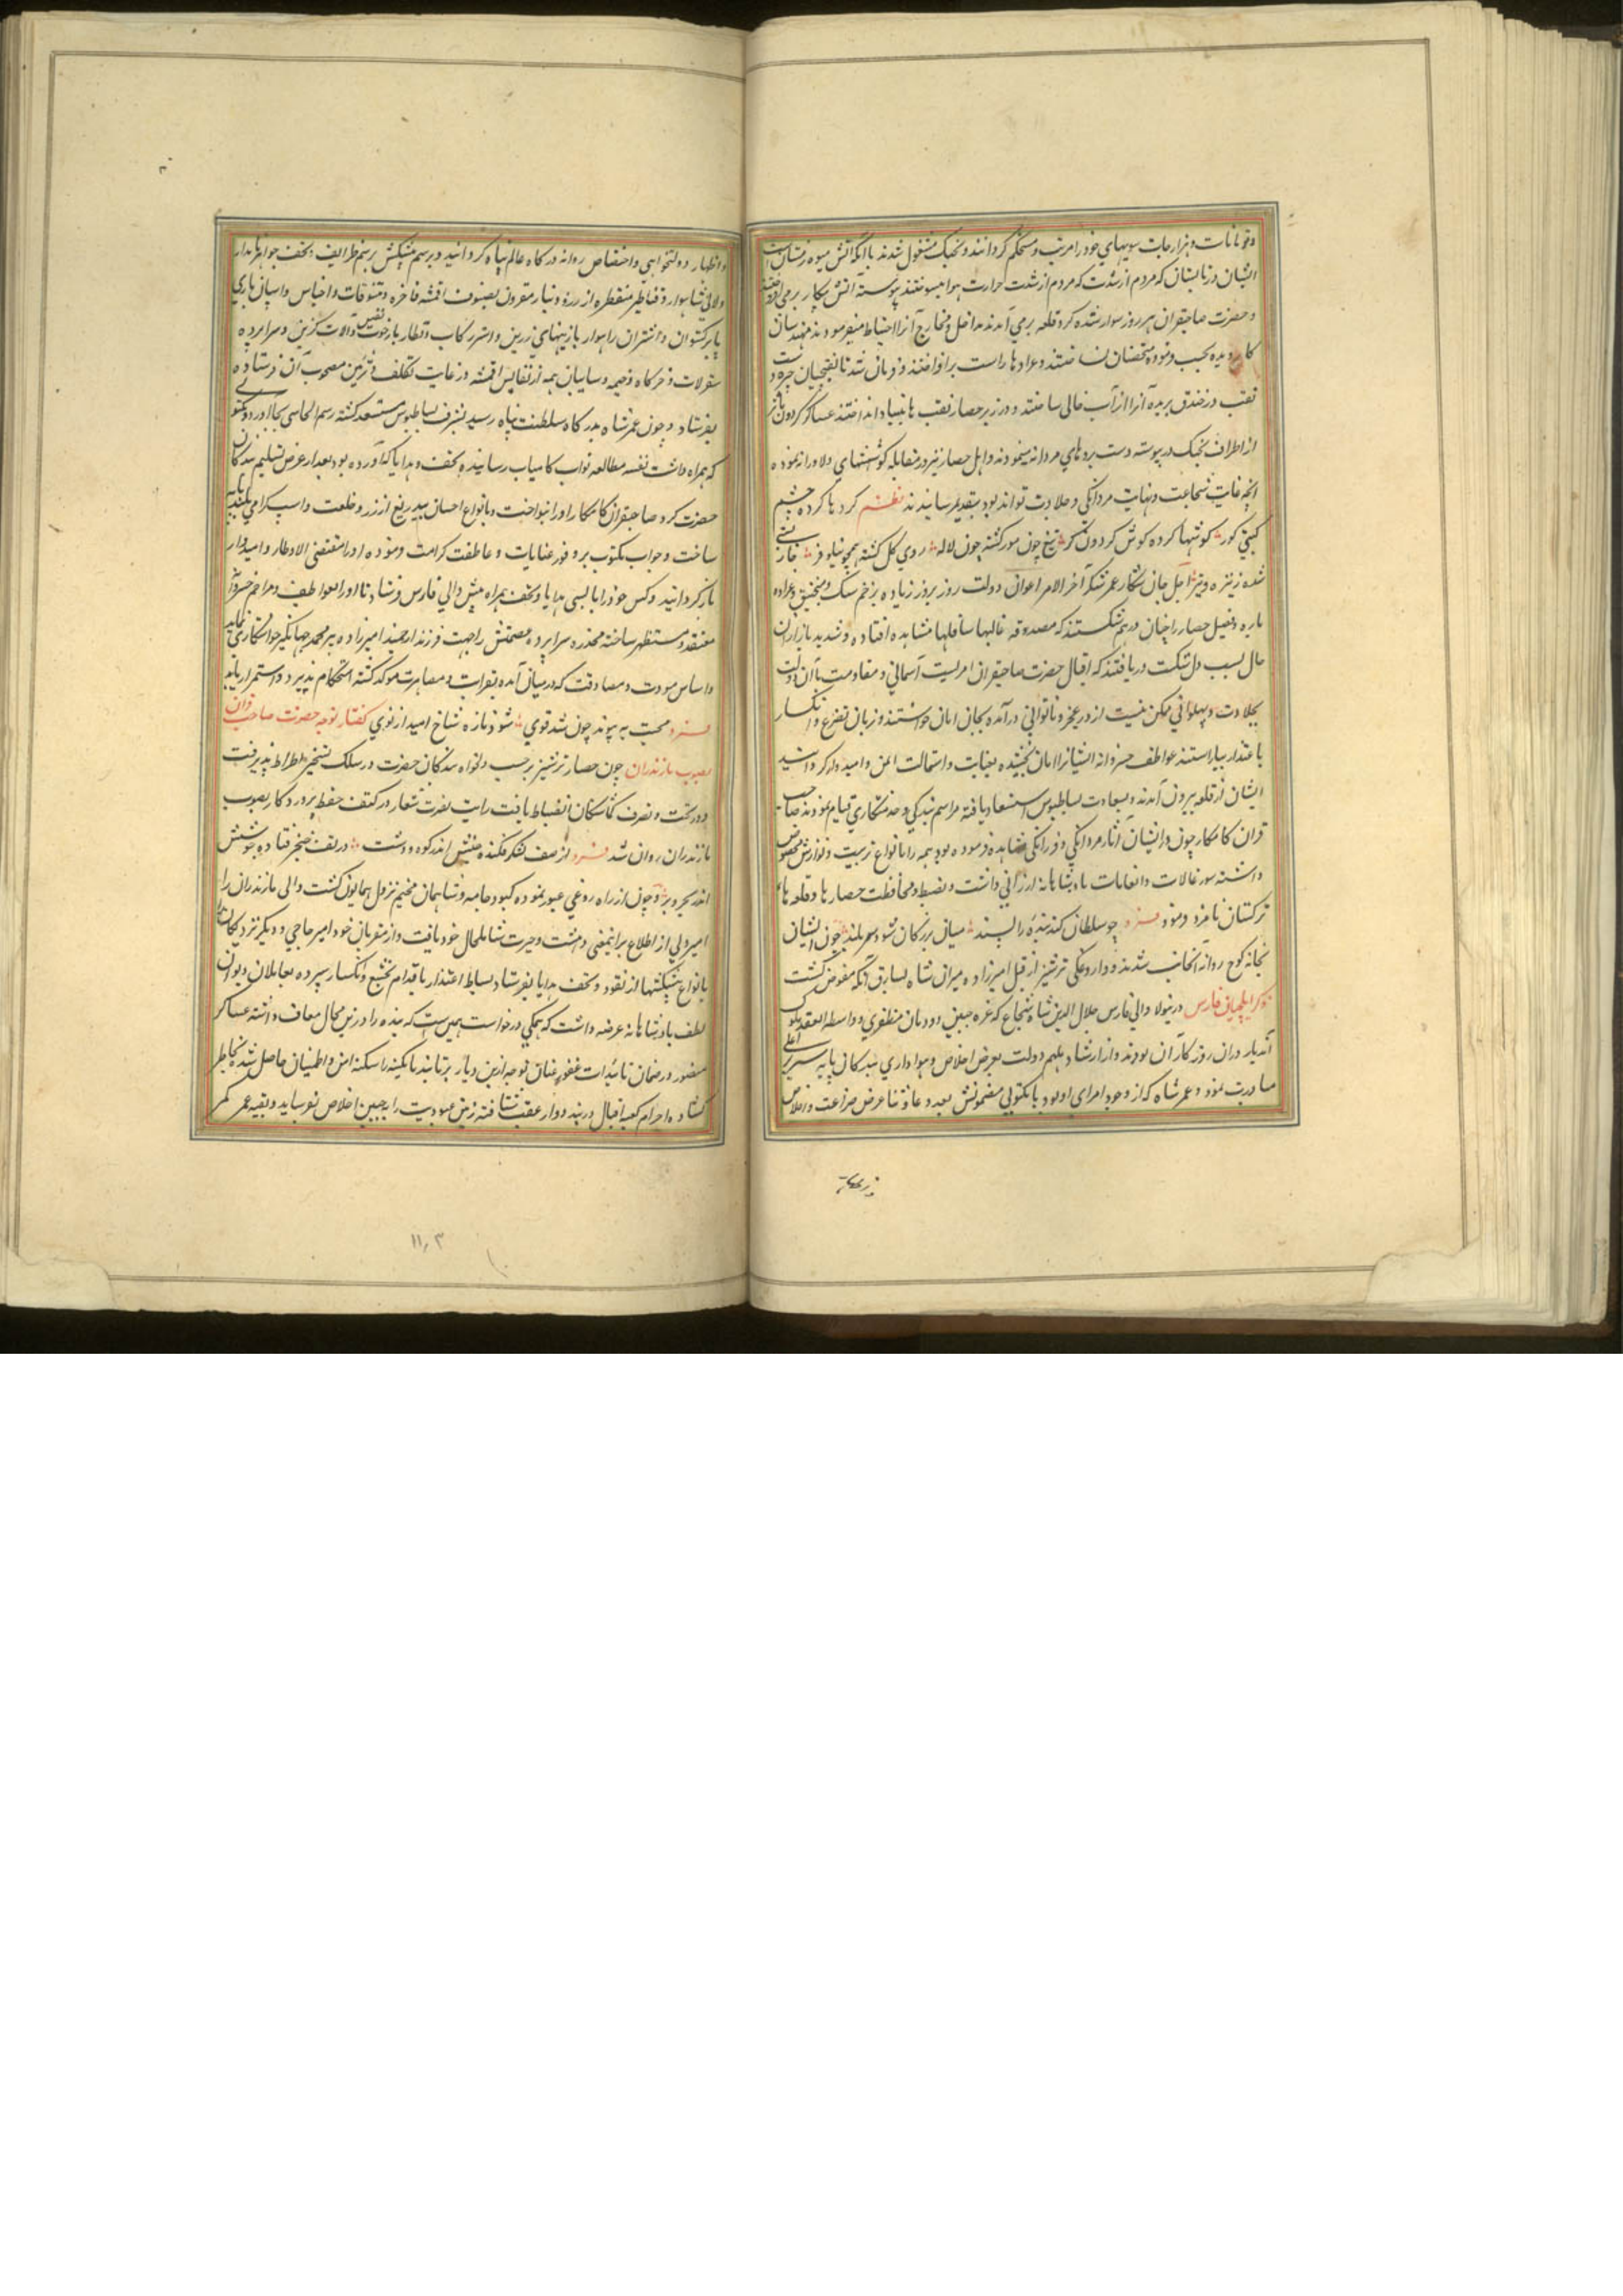 و قوشونات و هزارجات سیبهای خود را مرتب و مستحکم کردانند و بجنک مشغول شدند با آنکه آتش میوه زمستان است
ایشان در تابستان که مردم از شدت حرارت هوا میسوختند پیوسته آتش پیکار برمی افروختند
و حضرت صاحبقران هر روز سوار شده کرد قلعه برمی آمدند مداخل و مخارج آنرا احتیاط میفرمودند مهندسان
کار دیده بجسب فرموده منجنیقها ساختند و عرادها راست برافراختند و فرمان شد تا نقبچیان چیره دست
نقب در خندق بریده آنرا از آب خالی ساختند و در زیر حصار نقب ها بنیاد انداختند عساکر کردون مآثر
از اطراف بجنک در پیوسته دست بردهای مردانه مینمودند و اهل حصار نیز در مقابله کوششهای دلاورانه نموده
آنچه غایت شجاعت و نهایت مردانکی و جلادت تواند بود بتقدیم رسانیدند نظم کردها کرده چشم
کیتی کور کوشها کرده کوش کردون کر تیغ چون مورکشته چون لاله روی کل کشته همچو نیلوفر فارغ
شده ز نیزه و تیر اجل جان شکار عمر شکر آخر الامر اعوان دولت روز بروز زیاده بزخم سنک و منجنیق و عراده
باره و فصیل حصار را چنان درهم شکستند که مصدوقه عالیها سافلها مشاهده افتاده و شدید بازاران
حال بسبب دل شکت دریافتند که اقبال حضرت صاحبقران امریست آسمانی و مقاومت با آن دولت
بجلادت و پهلوانی ممکن نیست از در عجز و ناتوانی درآمده بجان امان خواستند و زبان تضرع و انکسار
با عتذار بیاراستند عواطف خسروانه ایشانرا امان بخشیده بعنایت و استمالت ایمن و امیدوار کردانید
ایشان از قلعه بیرون آمدند و بسعادت بساطبوس استسعاد یافته مراسم بندکی و خدمتکاری قیام نمودند صاحب
قران کامکار چون از ایشان آثار مردانکی و فرزانکی مشاهده فرموده بود همه را بانواع تربیت و نوازش مخصوص
داشته سیورغالات و انعامات پادشاهانه ارزانی داشت و بضبط و محافظت حصارها و قلعه ها
ترکستان نامزد فرمود فرد چو سلطان کند بنده را پسند میان بزرکان شود سر بلند چون ایشان
بخانه کوچ روانه آنجانب شدند و داروغکی ترشیز از قبل امیرزاده میران شاه بسارق اتکه مفوض کشت
ذکر ایلچیان فارس درینولا والی فارس جلال الدین شاه شجاع که غره جبین دودمان مظفری و واسطه العقد ملوک
آندیار دران روزکاران بودند و از ارشاد ملهم دولت بعرض اخلاص و هواداری بندکان پایه سریر اعلی
مبادرت نمود و عمر شاه که از وجوه امرای او بود با مکتوبی مضمونش بعد دعا و ثنا عرض ضراعت و اخلاص
و اظهار دولتخواهی و اختصاص روانه درکاه عالم پناه کردانید و برسم پیشکش برسم ظرایف تحف جواهر آبدار
و لآلی شاهوار و قناطیر مقنطره از زر و دینار مقرون بصنوف اقمشه فاخره و تنسوقات و اجناس و اسپان تازی
با برکستوان و اشتران راهوار با زینهای زرین و استر رکاب و قطار با رخوت نفیس و آلات کزین و سراپرده
سقرلات و خرکاه و خیمه و سایبان همه از نفایس اقمشه در غایت تکلف و تزیین مصحوب آن فرستاده
بفرستاد و چون عمر شاه بدرکاه سلطنت پناه رسید بشرف بساطبوس مستسعد کشته رسم الجاسی بجا آورد و مکتوبی
که همراه داشت بمطالعه نواب کامیاب رسانیده و تحف و هدایا که آورده بود بعد از عرض تسلیم بندکان
حضرت کرد صاحبقران کامکار او را بنواخت و بانواع احسان بیدریغ از زر و خلعت و اسپ کرامی
ساخت و جواب مکتوب بر وفور عنایات و عاطفت کرامت فرموده او را مقتضی الاوطار و امیدوار
بازکردانید و کس خود را با بسی هدایا و تحف همراه پیش والی فارس فرستاد تا او را بعواطف و مراحم خسروانه
معتقد و مستظهر ساخته مخدره سراپرده عصمتش را جهت فرزند ارجمند امیرزاده پیر محمد جهانکیر خواستکاری نماید
و اساس مودت و مصادقت که در میان آمده بقرابت و مصاهرت موکد کشته استحکام پذیرد و استمرار یابد
فرد محبت به پیوند چون شد قوی شود تازه شاخ امید از نوی کفتار توجه حضرت صاحب قران
بصوب مازندران چون حصار ترشیز برحسب دلخواه بندکان حضرت در سلک تسخیر انخراط پذیرفت
و در تحت و تصرف کماشتکان انضباط یافت رایت نصرت شعار در کنف حفظ پروردکار بصوب
مازندران روان شد فرد از صف لشکر فکنده جنبش اندر کوه و دشت در لف خنجر فتاده جوشش
اندر بحر و بر و چون از راه روغی عبور نموده کبود جامه و شاسمان مخیم نزول همایون کشت والی مازندران را
امیر ولی از اطلاع برانیمعنی دهشت و حیرت شامل حال خود یافت و از مقربان خود امیر حاجی و دیکر نزدیکان را
بانواع پیشکشها از نقود و تحف و هدایا بفرستاد بساط اعتذار باقدام تخشع و انکسار سپرده بعاملان دیوان
لطف پادشاهانه عرضه داشت که همکی درخواست همین است که بنده را درین مجال معاف داشته عساکر
منصور در ضمان تائیدات غفور عنان توجه ازین دیار برتابند تا کمینه را سکنه امن و اطمینان حاصل شده بخاطر
کشاده احرام کعبه اقبال در بند و و از عقب شتافته زمین عبودیت را به جبین اخلاص نور ساید و بقیه عمر کمر
۱۱۰۳